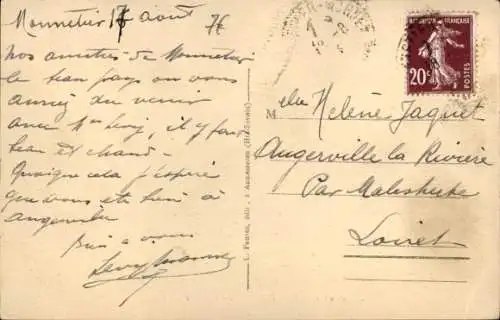 Monnetier 17 août
76
Nos amitiés de Monnetier
le beau pays où vous
auriez du venir
avec Mr Levy, il y fait
beau et chaud.
Quoique cela j'espère
que vous êtes bien à
Angerville
Bien à vous
Levy
REPUBLIQUE FRANÇAISE
20c
POSTES
Melle Helène Jaquet
Angerville la Rivière
Par Malesherbes
Loiret